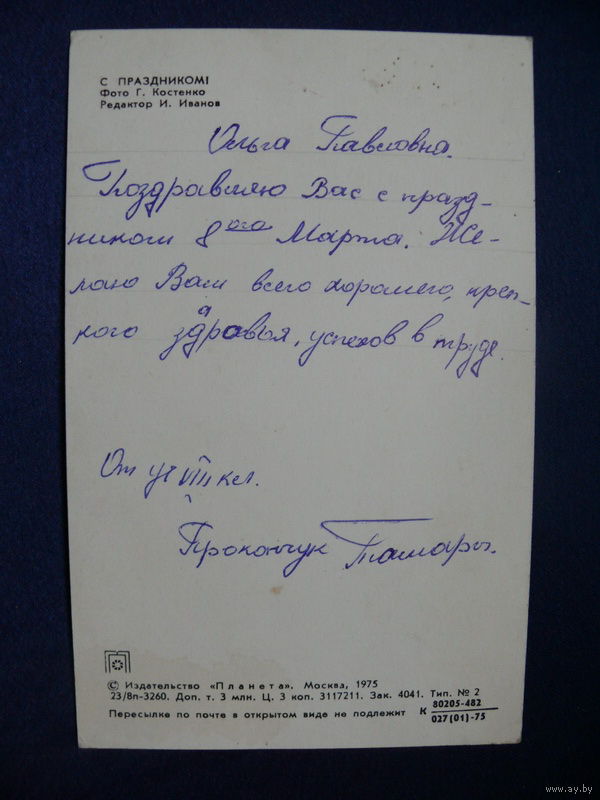 С ПРАЗДНИКОМ!
Фото Г. Костенко
Редактор И. Иванов
Ольга Павловна.
Поздравляю Вас с празд-
ником 8ого Марта. Же-
лаю Вам всего хорошего, креп-
кого здаровья, успехов в труде.
От уч VIII кл.
Прокопчук Тамары.
© Издательство «Планета». Москва, 1975
23/8п-3260. Доп. т. 3 млн. Ц. 3 коп. 3117211. Зак. 4041. Тип. № 2
Пересылке по почте в открытом виде не подлежит К 80205-482
027(01)-75
www.ay.by